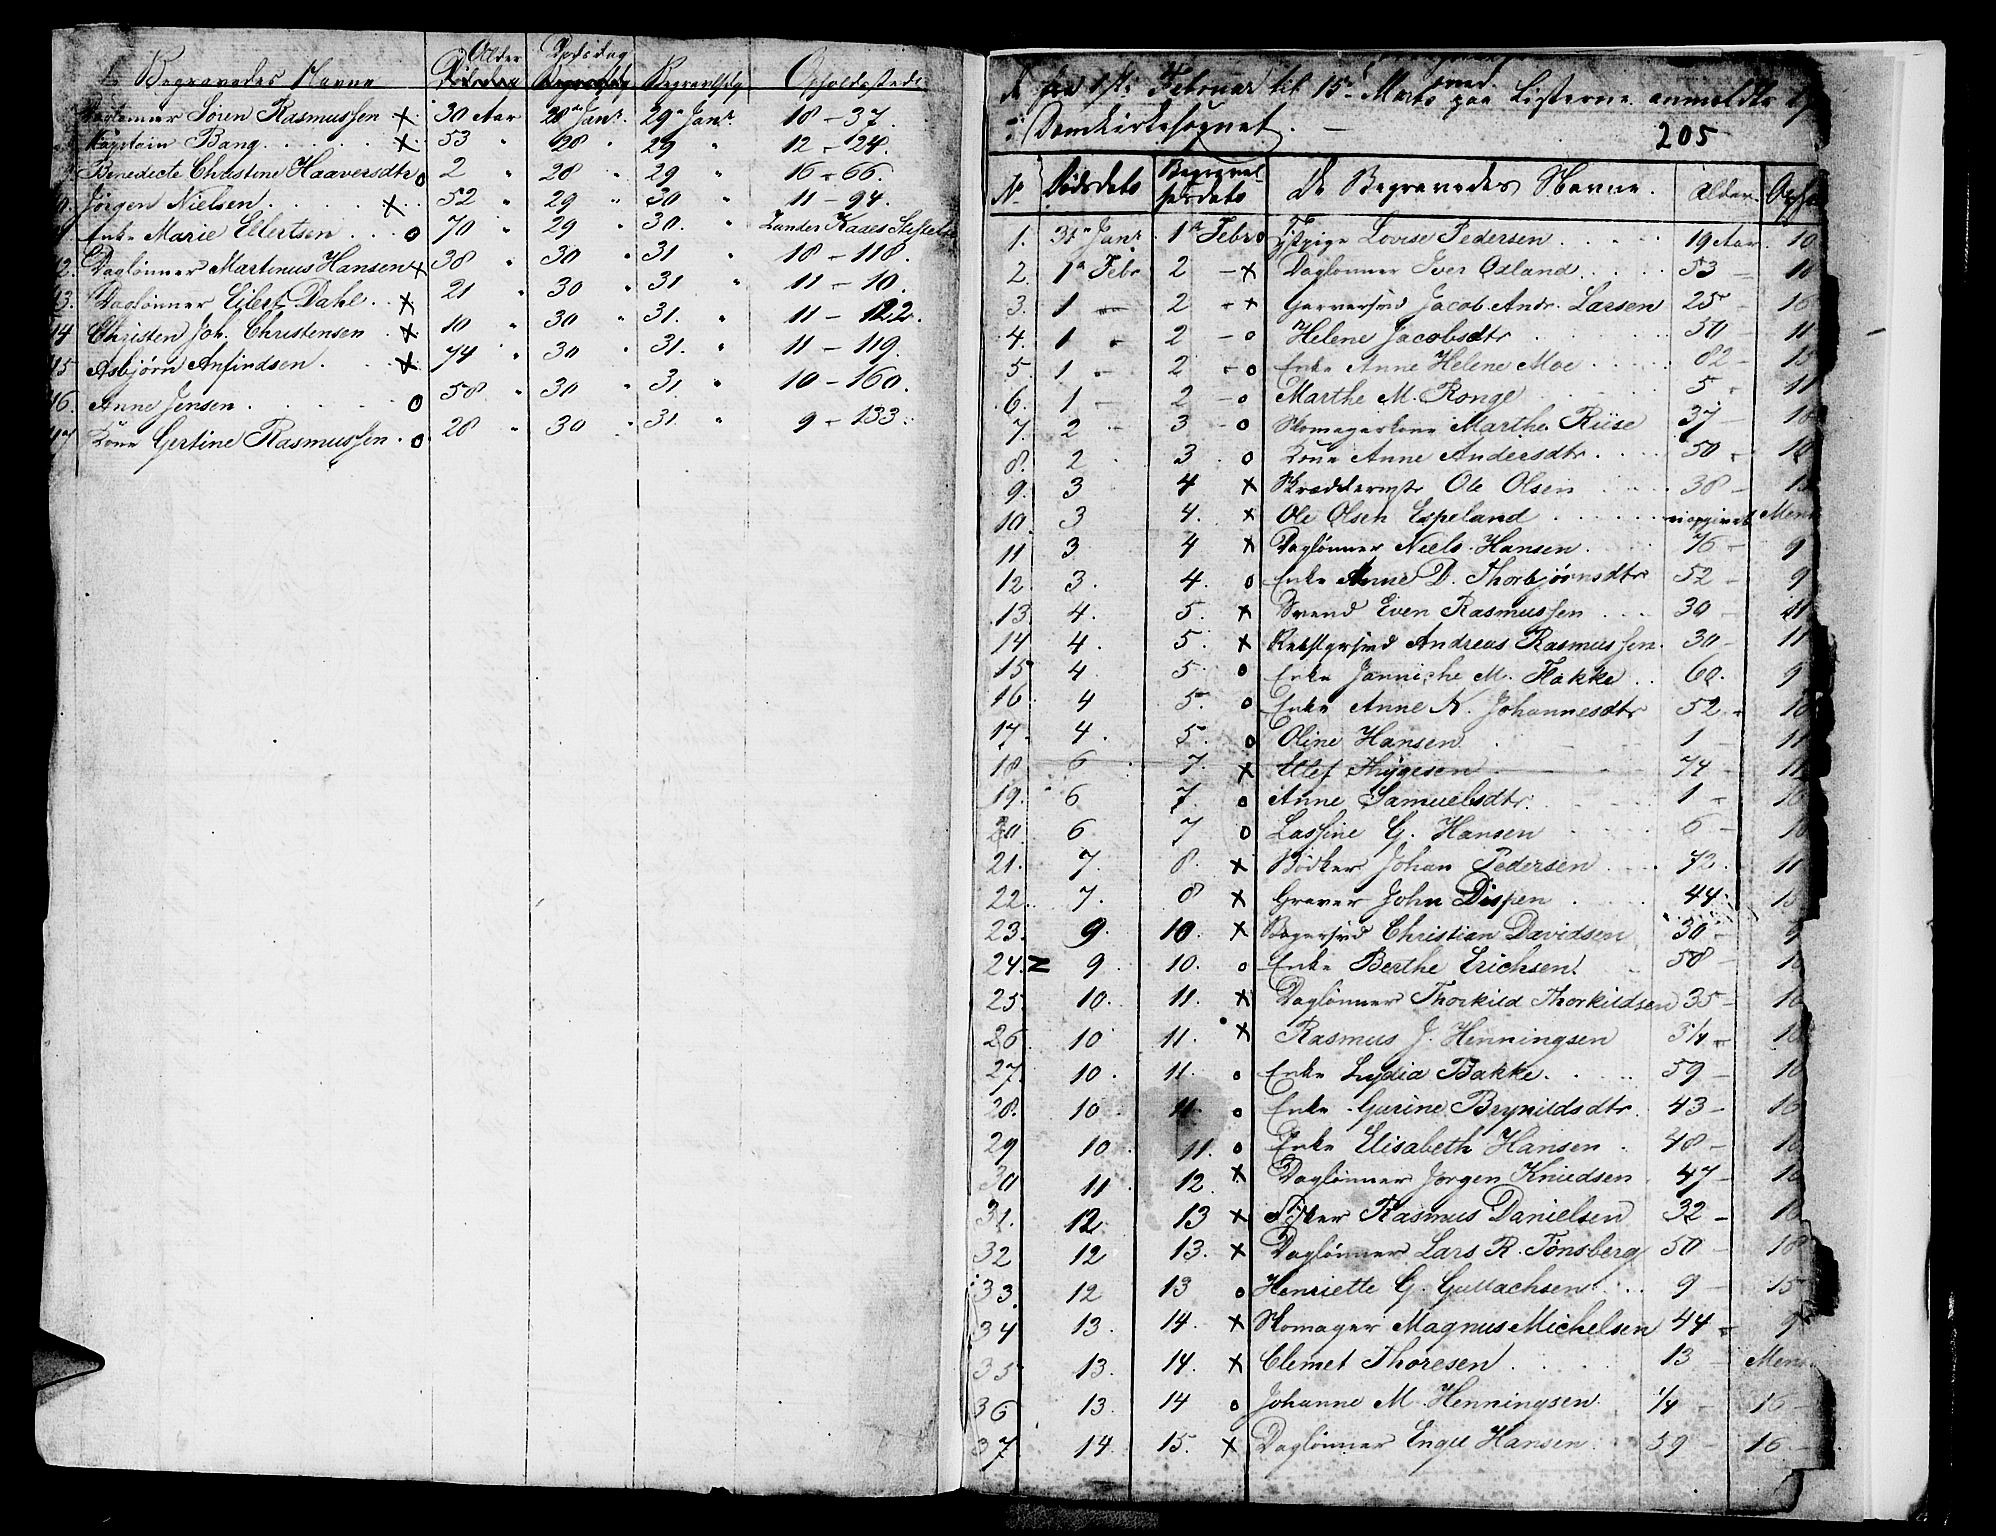 Begravedes Navne Alder Dødsdag Begravelsdg Opholdssted
Daglønner Søren Rasmussen × 30 Aar 28 Janr. 29 Janr. 18 - 37.
Bang × 53 " 28 " 29 " 12 - 124.
Benedicte Christine Haaversdtr o 2 " 28 " 29 " 16 - 66.
Jørgen Nielsen × 52 " 29 " 30 " 11 - 94.
Enke Marie Ellertsen o 70 " 29 " 30. " Zander Kaaes Stiftelse
12. Daglønner Martinus Hansen × 38 " 30 " 31 " 18 - 118.
13. Daglønner Eilert Dahl × 21 " 30 " 31 " 11 - 10.
14 Christen Joh. Christensen × 10 " 30 " 31. " 11 - 122.
15 Asbjørn Anfindsen × 74 " 30 " 31. " 11 - 119.
16. Anne Jensen o 58 " 30 " 31. " 10 - 160.
17 Kone Gertine Rasmussen o 28 " 30 " 31. " 9 - 133.
fra 1ste Februar til 15de Marts paa Listerne anmeldte
i Domkirkesognet.
205
No. Dødsdato Begravelsesdato De Begravedes Navne. Alder.
1. 31 Janr 1 Febr o Tjpige Lovise Pedersen 19 Aar 10
2. 1 Febr 2 - × Daglønner Iver Odland 53 - 10
3. 1 2 - × Garversvd Jacob Andr. Larsen 25 -
4. 1 2 - o Helene Jacobsdtr 50 11
5. 1 - 2 - o Enke Anne Helene Moe 82 -
6. 1 - 2 - o Marthe M. Ronge 5 - 11
7. 2 3 - o Skomagerkone Marthe Riise 37 -
8. 2 3. o Kone Anne Andersdtr. 50 -
9. 3 4 × Skræddermstr Ole Olsen 38 -
10. 3 4. × Ole Olsen Espeland ei opgivet
11 3 4 × Daglønner Niels Hansen. 76 - 9
12. 3. 4. o Enke Anne D. Thorbjørnsdtr 52 - 9
13. 4. 5. × Svend Even Rasmussen 30 - 11
14 4. 5. × Andreas Rasmussen. 30 - 11
15 4. 5 o Enke Janniche M. Flakke 60. 9
16 4 5. o Enke Anne N. Johannesdtr 52 - 10
17. 4. 5. o Oline Hansen 1 - 11
18. 6 7. × Ellef Thygesen 74 - 11
19. 6 7. o Anne Samuelsdtr. 1 - 10
20 6. 7 o Lassine G. Hansen 6 - 10
21. 7. 8. × Bødker Johan Pedersen 72. 11
22. 7. 8 × Graver John Dispen 44. 15
23. 9. 10. × Bagersvd Christian Davidsen 30 - 9
24. 9. 10. o Enke Berthe Erichsen. 58 - 10
25. 10. 11. × Daglønner Thorkild Thorkildsen 35 - 10
26. 10 11. × Rasmus J. Henningsen 3/4 - 10
27. 10. 11. o Enke Lydia Bakke. 59 - 10
28. 10 11. o Enke Gurine Brynildsdtr. 43 - 10
29 10. 11. o Enke Elisabeth Hansen 48 - 10
30 11. 12. × Daglønner Jørgen Knudsen 47 - 10
31. 12. 13 × Rasmus Danielsen 32 - 10
32 12 13. × Daglønner Lars R. Tønsberg 50 - 18
33. 12 13 o Henriette G. Gullachsen 9 - 15
34 13. 14. × Skomager Magnus Michelsen 44 - 9
35 13. 14. × Clemet Thoresen 13 -
36 13. 14 o Johanne M. Henningsen 1/4 - 16 -
37 14. 15. × Daglønner Engel Hansen 59 - 16. -